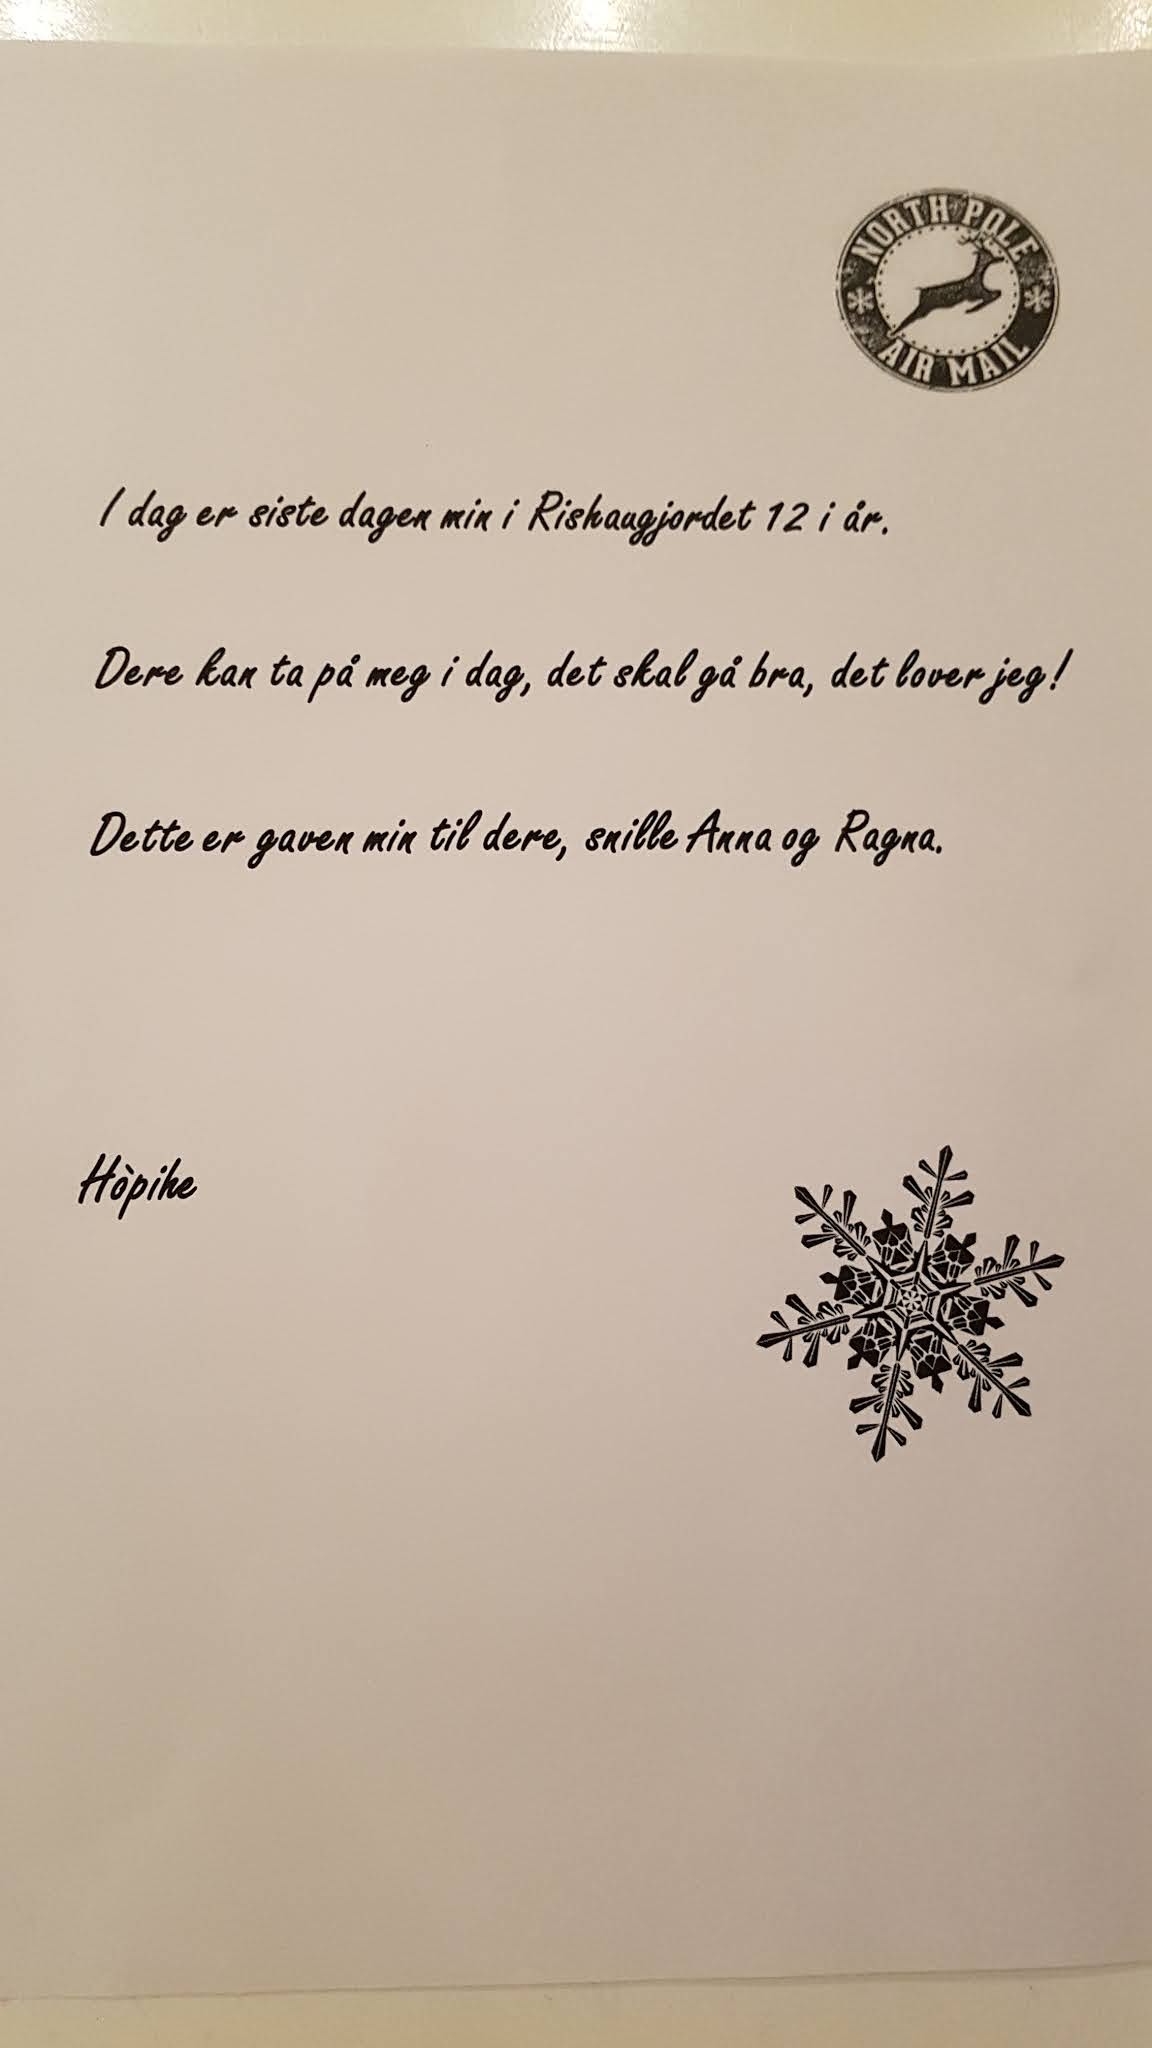 NORTH POLE
AIR MAIL
I dag er siste dagen min i Rishaugjordet 12 i år.
Dere kan ta på meg i dag, det skal gå bra, det lover jeg!
Dette er gaven min til dere, snille Anna og Ragna.
Hòpihe